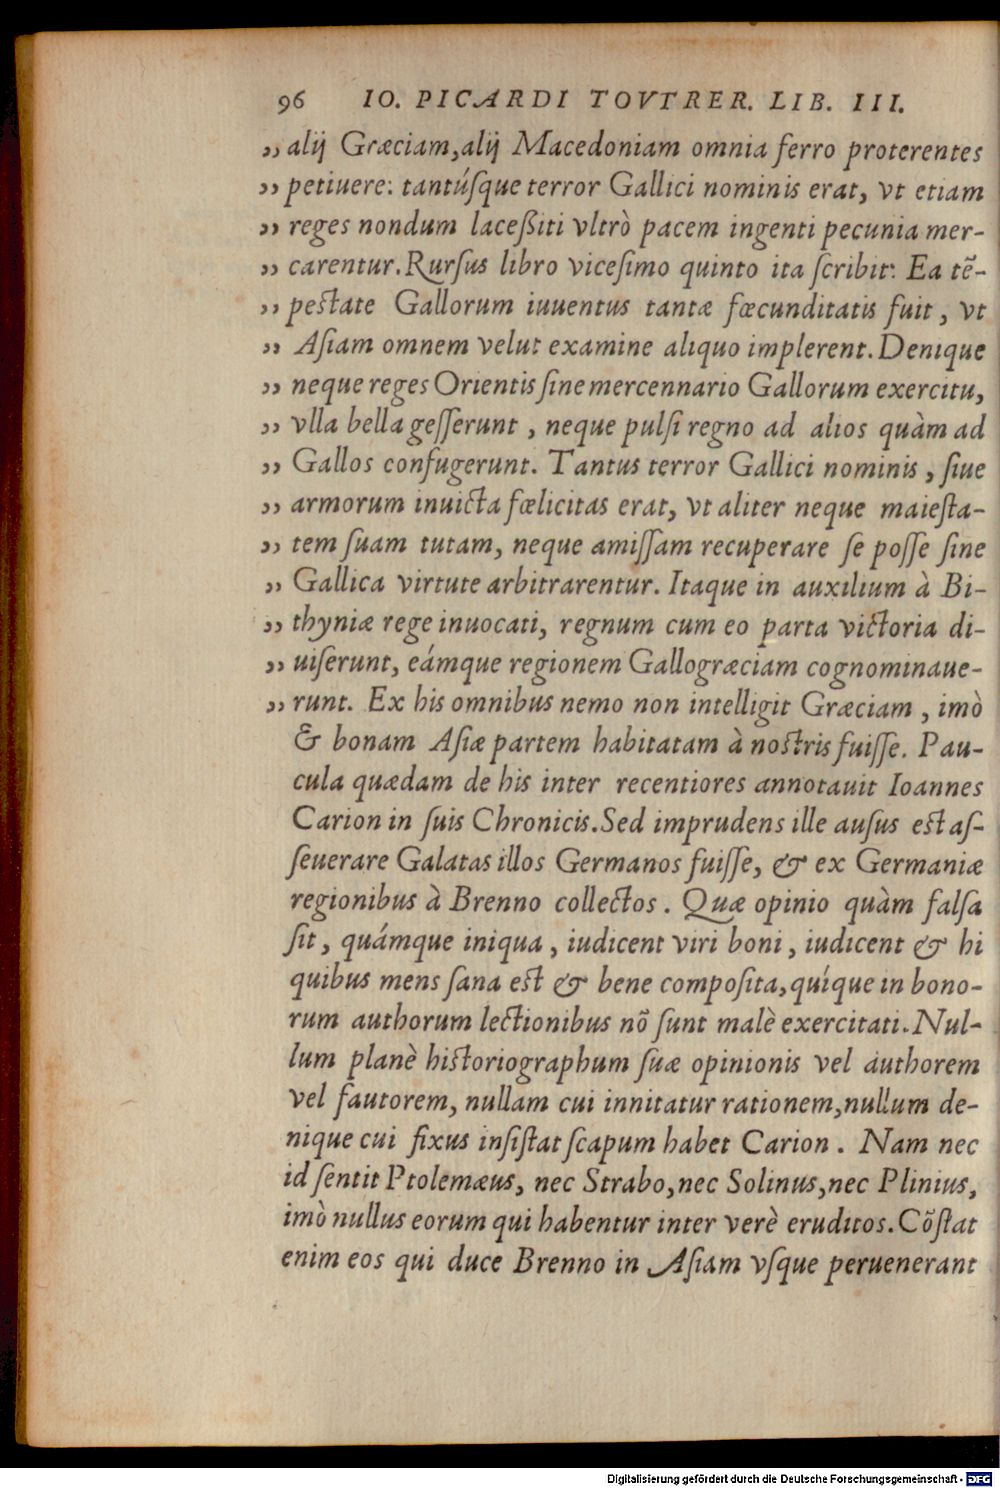 96 IO. PICARDI TOVTRER. LIB. III.
„ alij Græciam, alij Macedoniam omnia ferro proterentes
„ petiuere: tantúſque terror Gallici nominis erat, vt etiam
„ reges nondum laceßiti vltrò pacem ingenti pecunia mer-
„ carentur. Rurſus libro viceſimo quinto ita ſcribit: Ea tẽ-
„ peſtate Gallorum iuuentus tantæ fœcunditatis fuit, vt
„ Aſiam omnem velut examine aliquo implerent. Denique
„ neque reges Orientis ſine mercennario Gallorum exercitu,
„ vlla bella geſſerunt, neque pulſi regno ad alios quàm ad
„ Gallos confugerunt. Tantus terror Gallici nominis, ſiue
„ armorum inuicta fœlicitas erat, vt aliter neque maieſta-
„ tem ſuam tutam, neque amiſſam recuperare ſe poſſe ſine
„ Gallica virtute arbitrarentur. Itaque in auxilium à Bi-
„ thyniæ rege inuocati, regnum cum eo parta victoria di-
„ uiſerunt, eámque regionem Gallogræciam cognominaue-
„ runt. Ex his omnibus nemo non intelligit Græciam, imò
& bonam Aſiæ partem habitatam à noſtris fuiſſe. Pau-
cula quædam de his inter recentiores annotauit Ioannes
Carion in ſuis Chronicis. Sed imprudens ille auſus eſt aſ-
ſeuerare Galatas illos Germanos fuiſſe, & ex Germaniæ
regionibus à Brenno collectos. Quæ opinio quàm falſa
ſit, quámque iniqua, iudicent viri boni, iudicent & hi
quibus mens ſana eſt & bene compoſita, quíque in bono-
rum authorum lectionibus nõ ſunt malè exercitati. Nul-
lum planè hiſtoriographum ſuæ opinionis vel authorem
vel fautorem, nullam cui innitatur rationem, nullum de-
nique cui fixus inſiſtat ſcapum habet Carion. Nam nec
id ſentit Ptolemæus, nec Strabo, nec Solinus, nec Plinius,
imò nullus eorum qui habentur inter verè eruditos. Cõſtat
enim eos qui duce Brenno in Aſiam vſque peruenerant
Digitalisierung gefördert durch die Deutsche Forschungsgemeinschaft - DFG